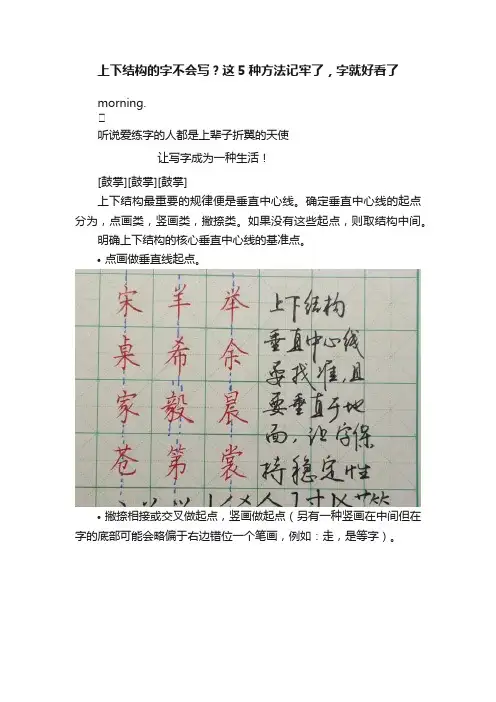 上下结构的字不会写？这5种方法记牢了，字就好看了
morning.
听说爱练字的人都是上辈子折翼的天使
让写字成为一种生活！
[鼓掌][鼓掌][鼓掌]
上下结构最重要的规律便是垂直中心线。确定垂直中心线的起点
分为，点画类，竖画类，撇捺类。如果没有这些起点，则取结构中间。
明确上下结构的核心垂直中心线的基准点。
• 点画做垂直线起点。
宋 羊 举 上下结构
桌 希 余 垂直中心线
要找准，且
家 毅 晨 要垂直于地
面，让字保
苍 第 裳 持稳定性
• 撇捺相接或交叉做起点，竖画做起点（另有一种竖画在中间但在
字的底部可能会略偏于右边错位一个笔画，例如：走，是等字）。